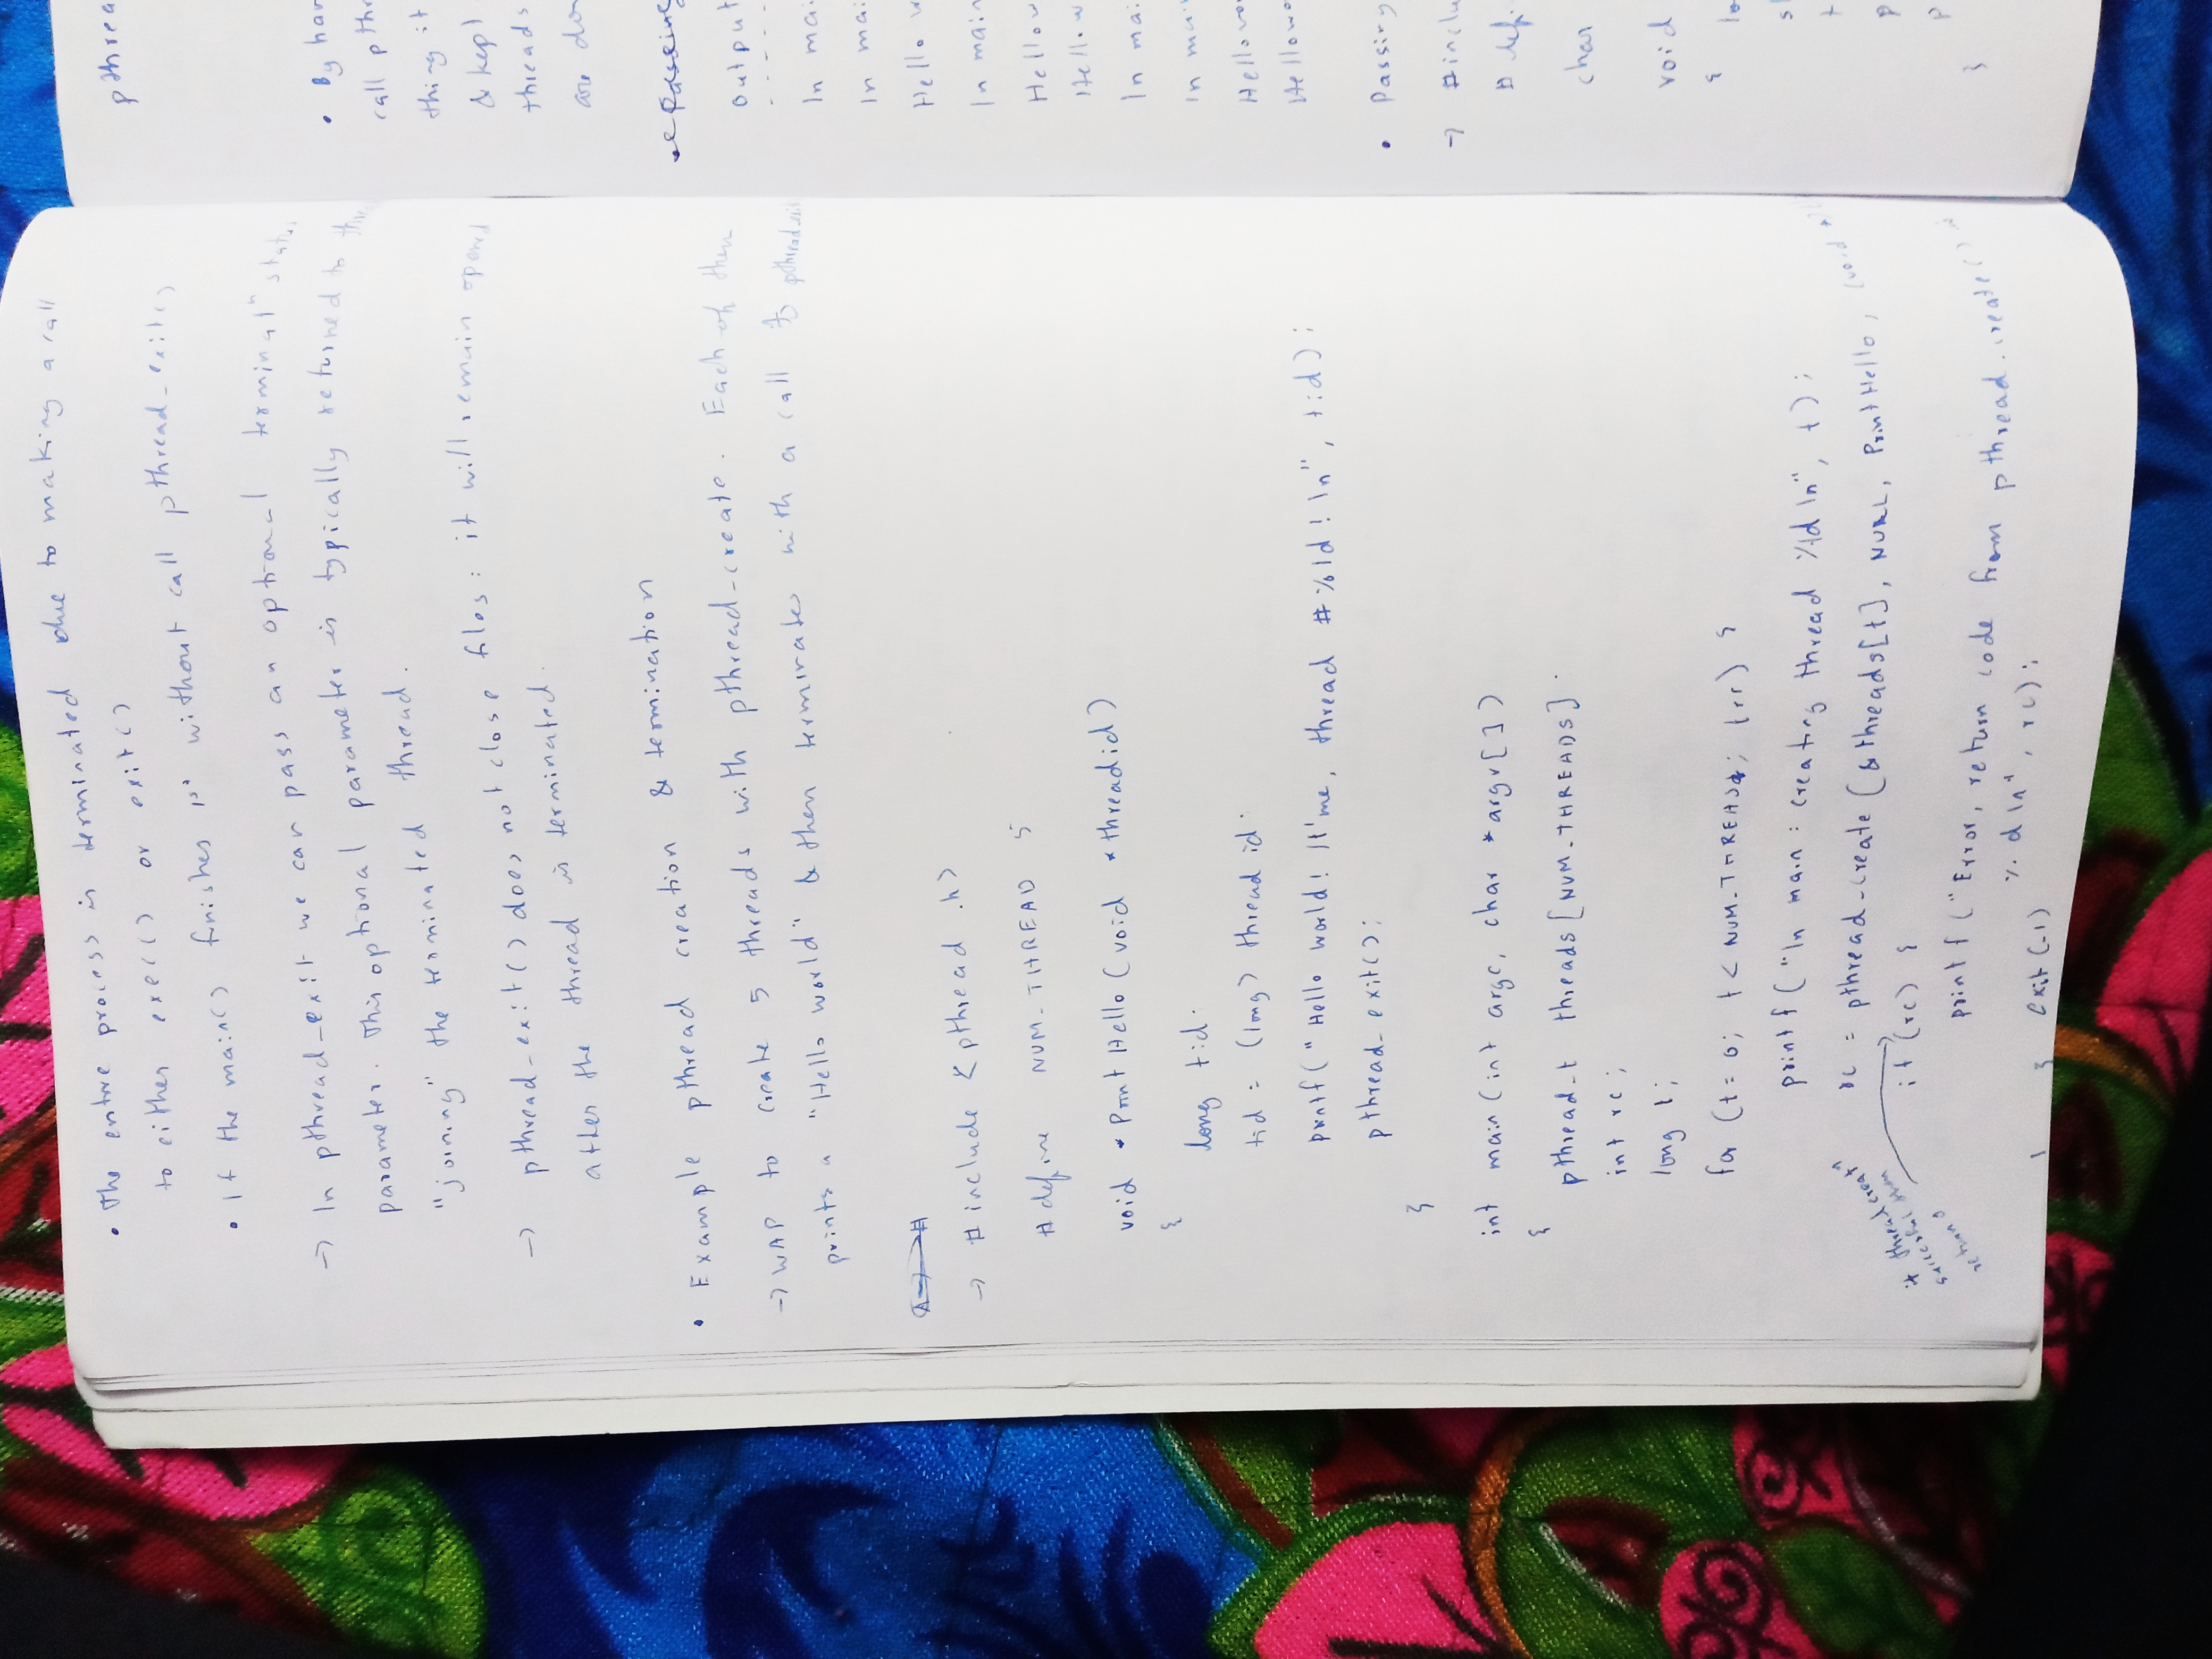 • The entire process is terminated due to making a call
to either exec() or exit()
• If the main() finishes 1st without call pthread_exit()
→ In pthread_exit we can pass an optional terminal" stat
parameter. This optional parameter is typically returned to thr
"joining" the terminated thread.
→ pthread_exit() does not close files: it will remain opened
after the thread is terminated.
• Example pthread creation & termination
→ WAP to create 5 threads with pthread_create. Each of them
prints a "Hello world" & then terminates with a call to pthread_exit
→ #include <pthread.h>
#define NUM_THREAD 5
void *PrintHello(void *threadid)
{
long tid.
tid = (long) threadid.
printf("Hello world! It'me, thread #%ld!\n", tid);
pthread_exit();
}
int main(int argc, char *argv[])
{
pthread_t threads[NUM_THREADS].
int rc;
long t;
for (t=0; t< NUM_THREADS; t++) {
printf("In main: creating thread %ld\n", t);
rc = pthread_create(&threads[t], NULL, PrintHello, (void *)
if (rc) {
* thread
successful
return 0
printf("Error, return code from pthread_create() is
%d\n", rc);
exit(-1)
}
pthrea
• By
call pthr
thing it
& kept
threads
are
Passing
output
In mai
In ma
Hello w
In main
Hello w
Hello w
In mai
In mai
Hellowo
Hellowo
• Passing
→ #inclu
# def
char
void
{
lo
s
t
p
p
}